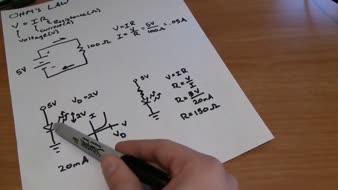 OHM'S LAW
V = IR
Resistance(Ω)
Current(A)
Voltage(V)
V = IR
I = V/R = 5V/100Ω = .05A
5V
100Ω
5V
V_D = 2V
2V
I
V
V_D
20mA
5V
V = IR
R = V/I
R = 3V/20mA
R = 150Ω